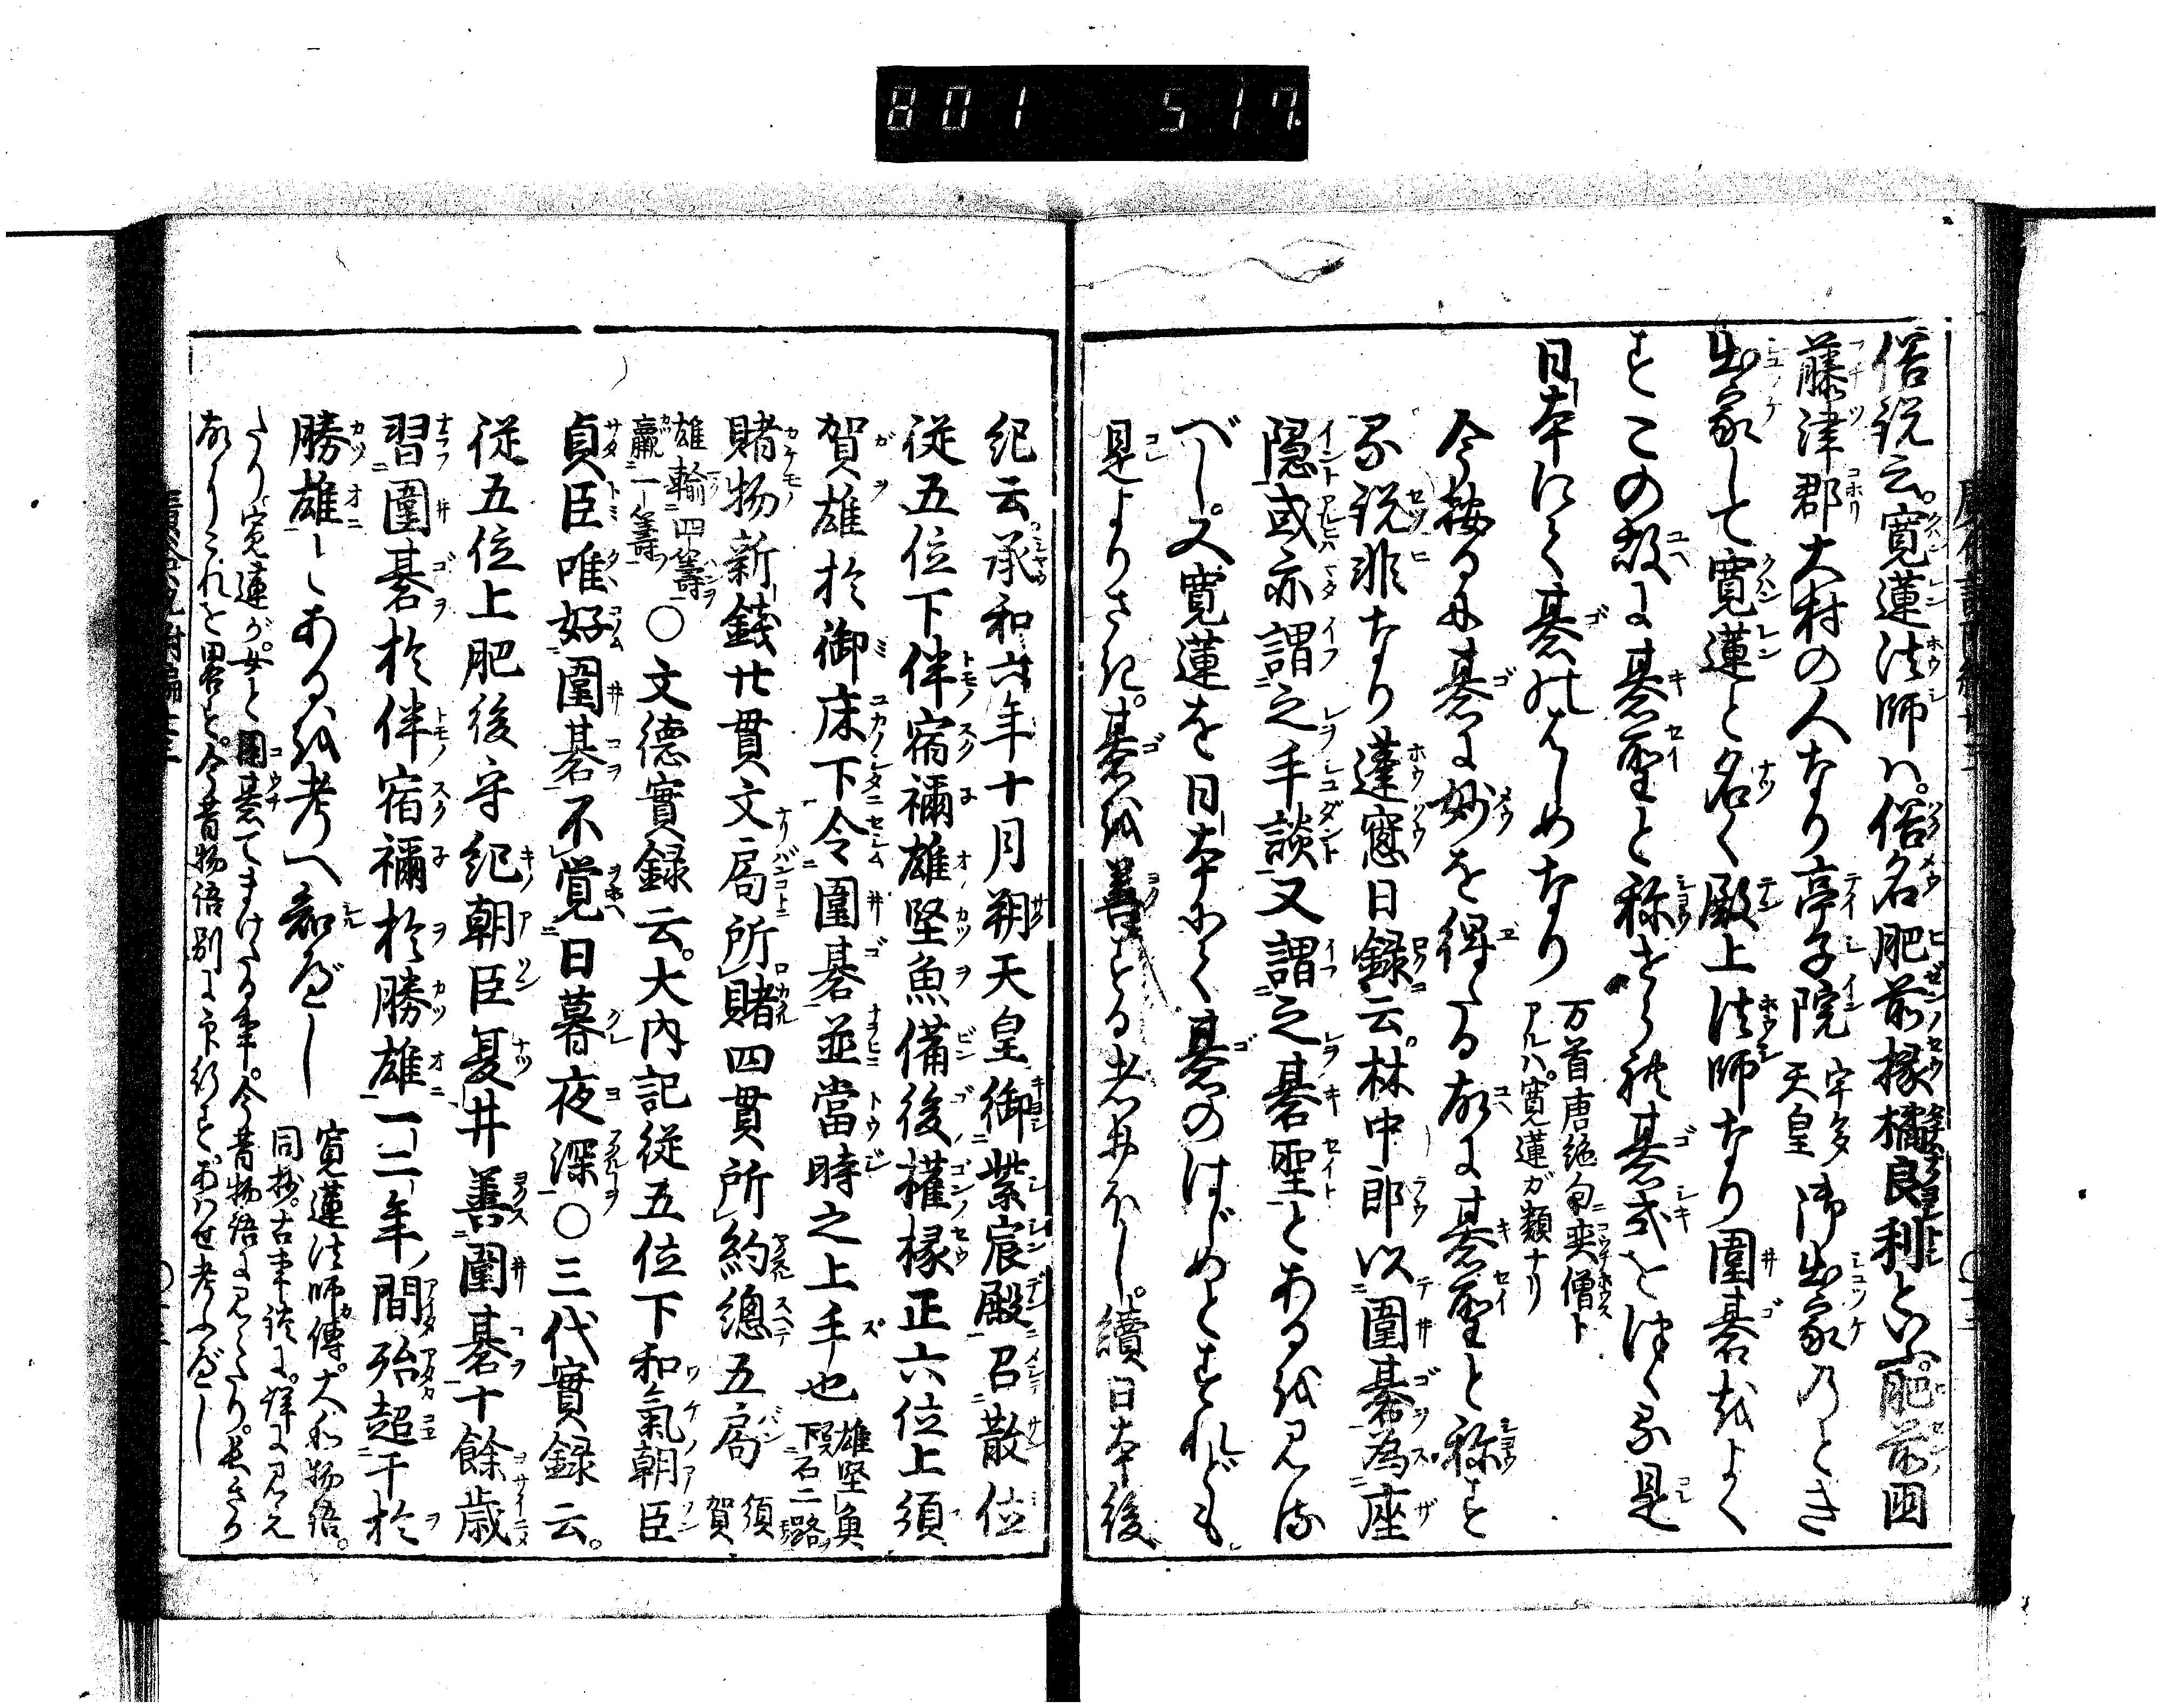 801 517
俗説云。寛蓮法師ハ。俗名肥前掾橘良利といふ。肥前国
藤津郡大村の人なり亭子院宇多天皇御出家乃とき
出家して寛蓮と名く殿上法師なり囲碁越よく
すこの故に碁聖と称せられ碁式をつくる是
日本にて碁のはしめなり万首唐絶句奕僧トアルハ。寛蓮ガ類ナリ
今按るに碁に妙を得たる故に碁聖と称す
る説非なり蓬窓日録云。林中郎以圍碁為座
隠或亦謂之手談又謂之碁聖とある越見る
べし。又寛蓮を日本にて碁のはじめとすれども。
是よりさき。碁越善する者おほし。續日本後
紀云。承和六年十月朔天皇御紫宸殿召散位
従五位下伴宿禰雄堅魚備後權掾正六位上須
賀雄於御床下令圍碁並當時之上手也雄堅魚下石二路
賭物新錢廿貫文局所賭四貫所約總五局須賀
雄輸四籌贏一籌〇文德實録云。大内記従五位下和氣朝臣
貞臣唯好圍碁不覚日暮夜深〇三代實録云。
従五位上肥後守紀朝臣夏井善圍碁十餘歳
習圍碁於伴宿禰於勝雄一二年間殆超于於
勝雄とある越考へ知べし寛蓮法師傳。大和物語。同抄。古事談に。詳に見え
たり寛蓮が。女と圍碁てまけたる事。今昔物語に見えたり。長きゆ
故にこれを畧す。今昔物語別に印行す。あはせ考ふべし